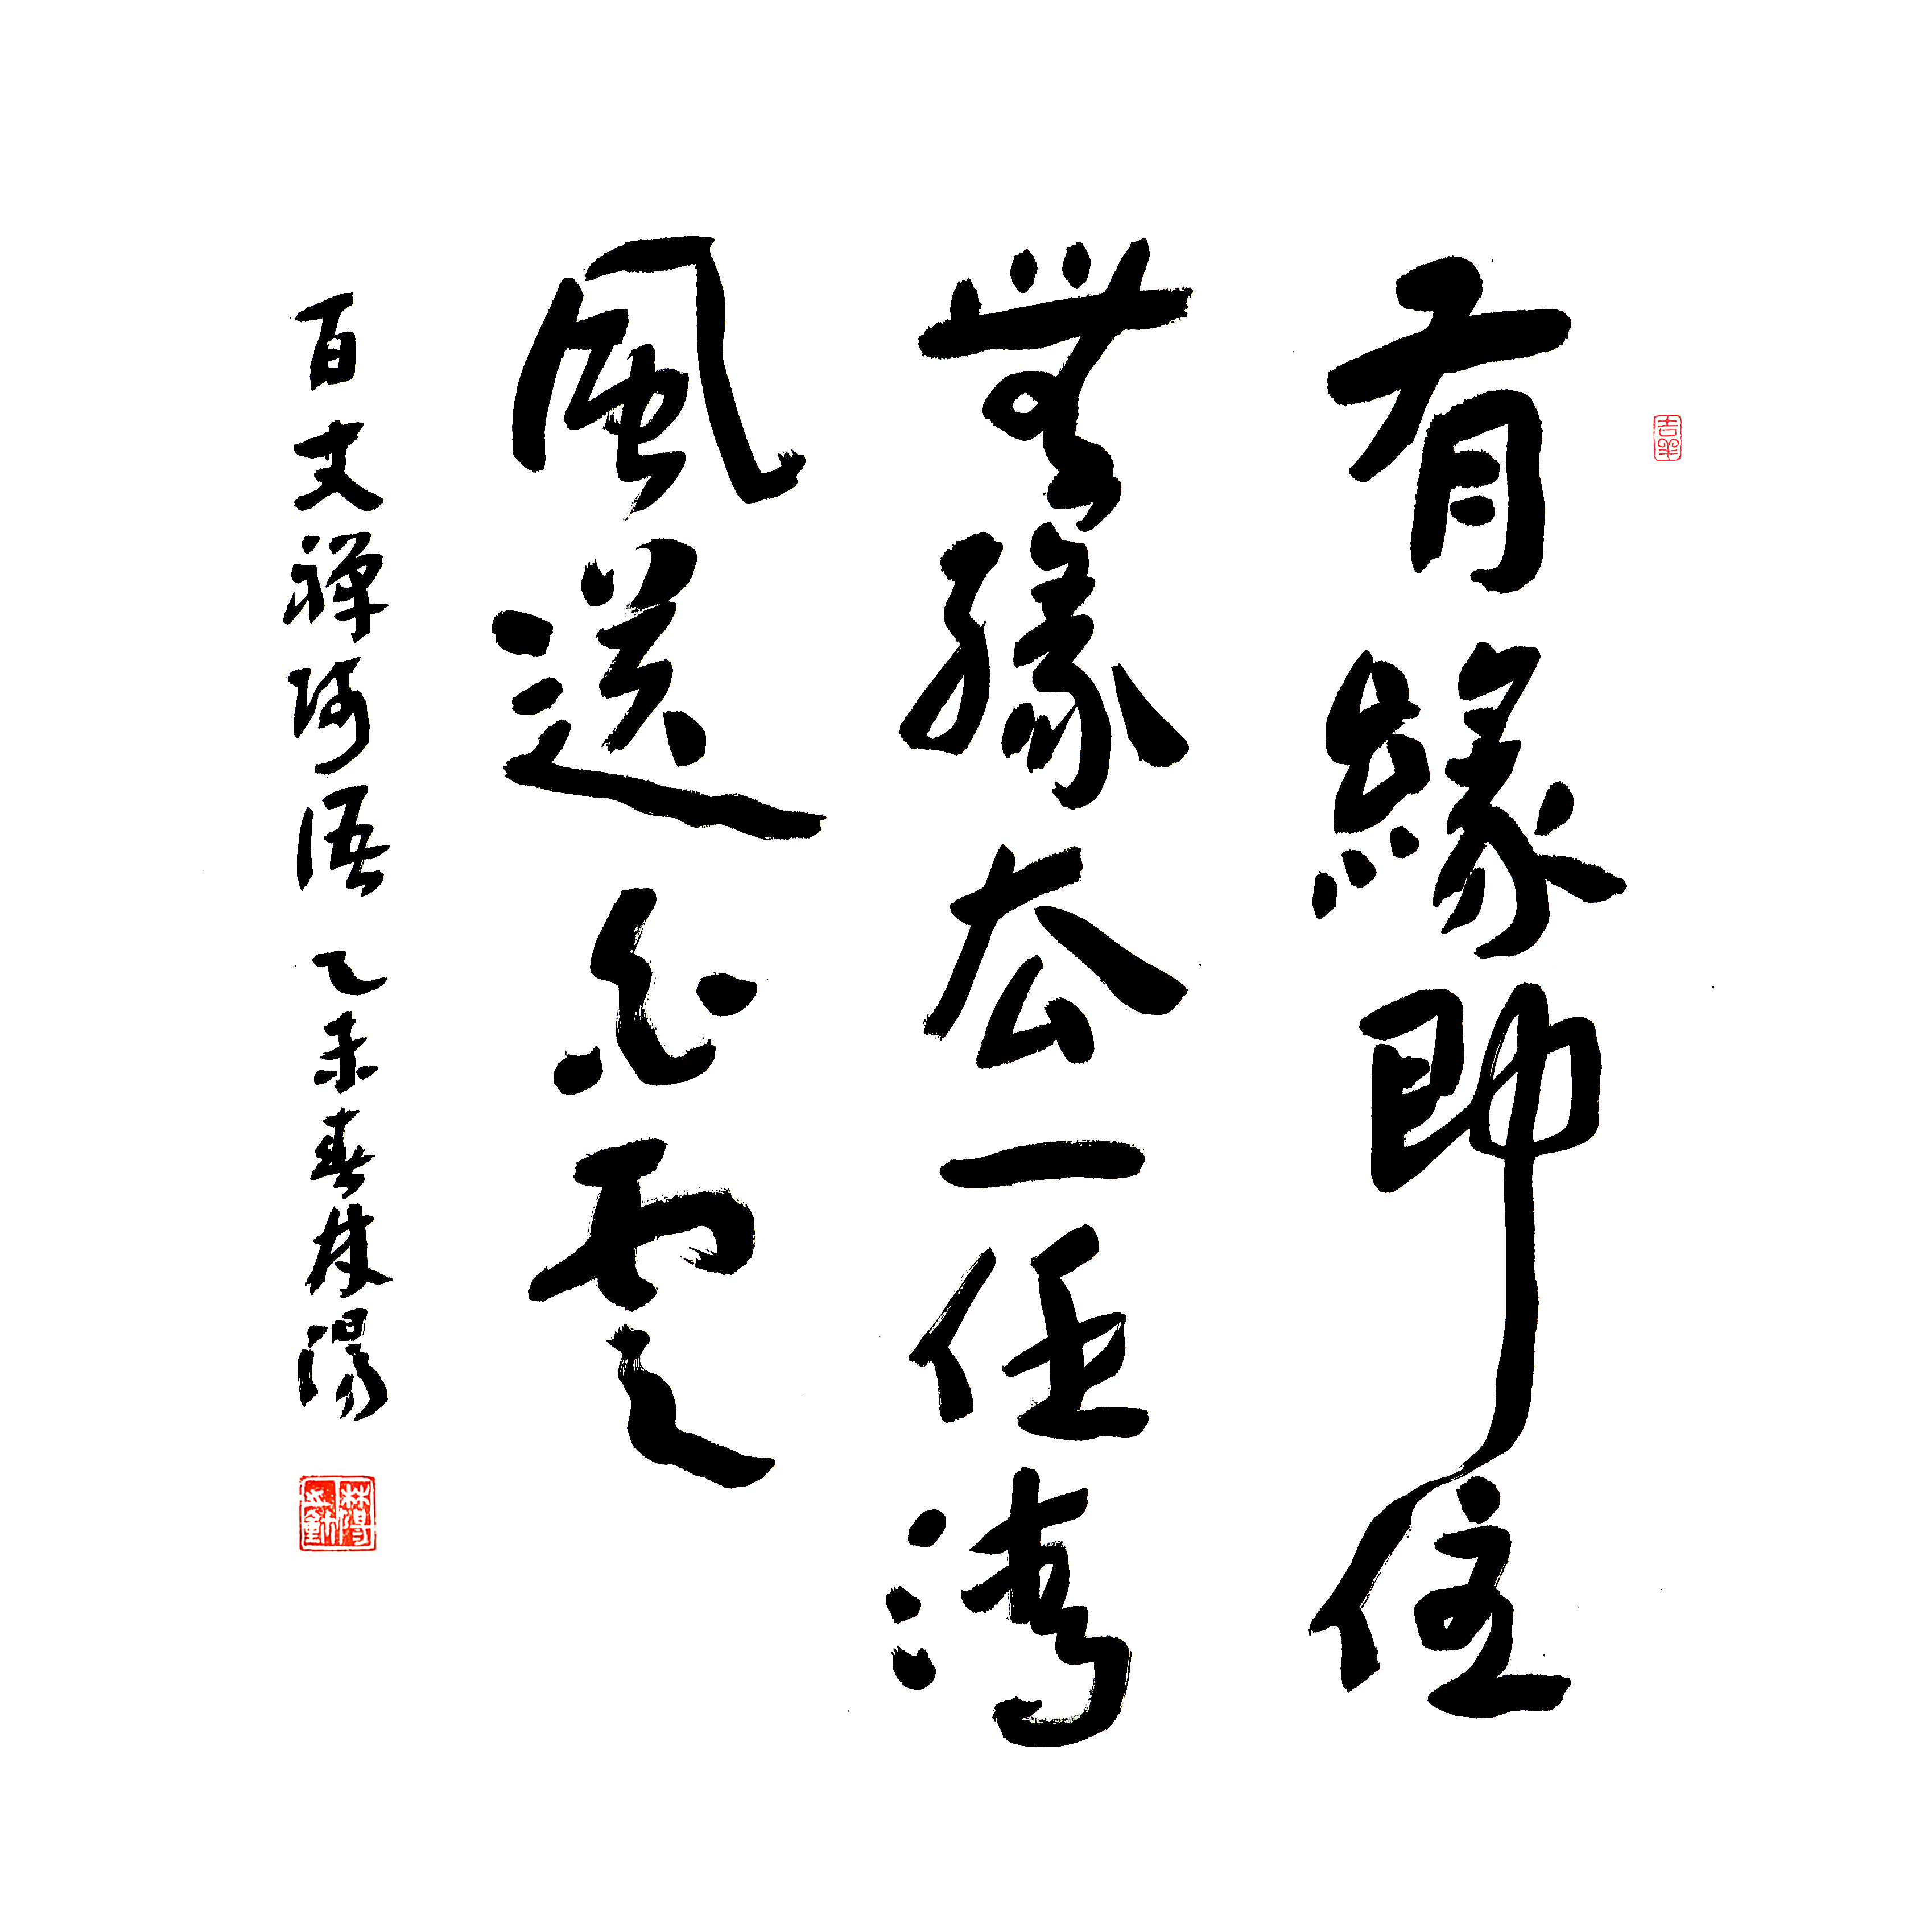 吉羊
有緣即住
無緣去一任清
風送白雲
百丈禪師語 乙未春林陽